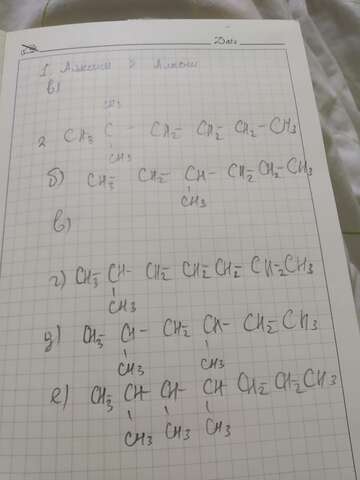 Date
1. Алкани > Алкани
в)
CH3
2 CH3 C - CH2- CH2- CH2-CH3
CH3
б) CH3- CH2- CH- CH2-CH2-CH3
CH3
в)
г) CH3-CH- CH2- CH2-CH2- CH2-CH3
CH3
д) CH3- CH- CH2- CH- CH2-CH3
CH3 CH3
е) CH3-CH-CH- CH-CH2-CH2-CH3
CH3 CH3 CH3